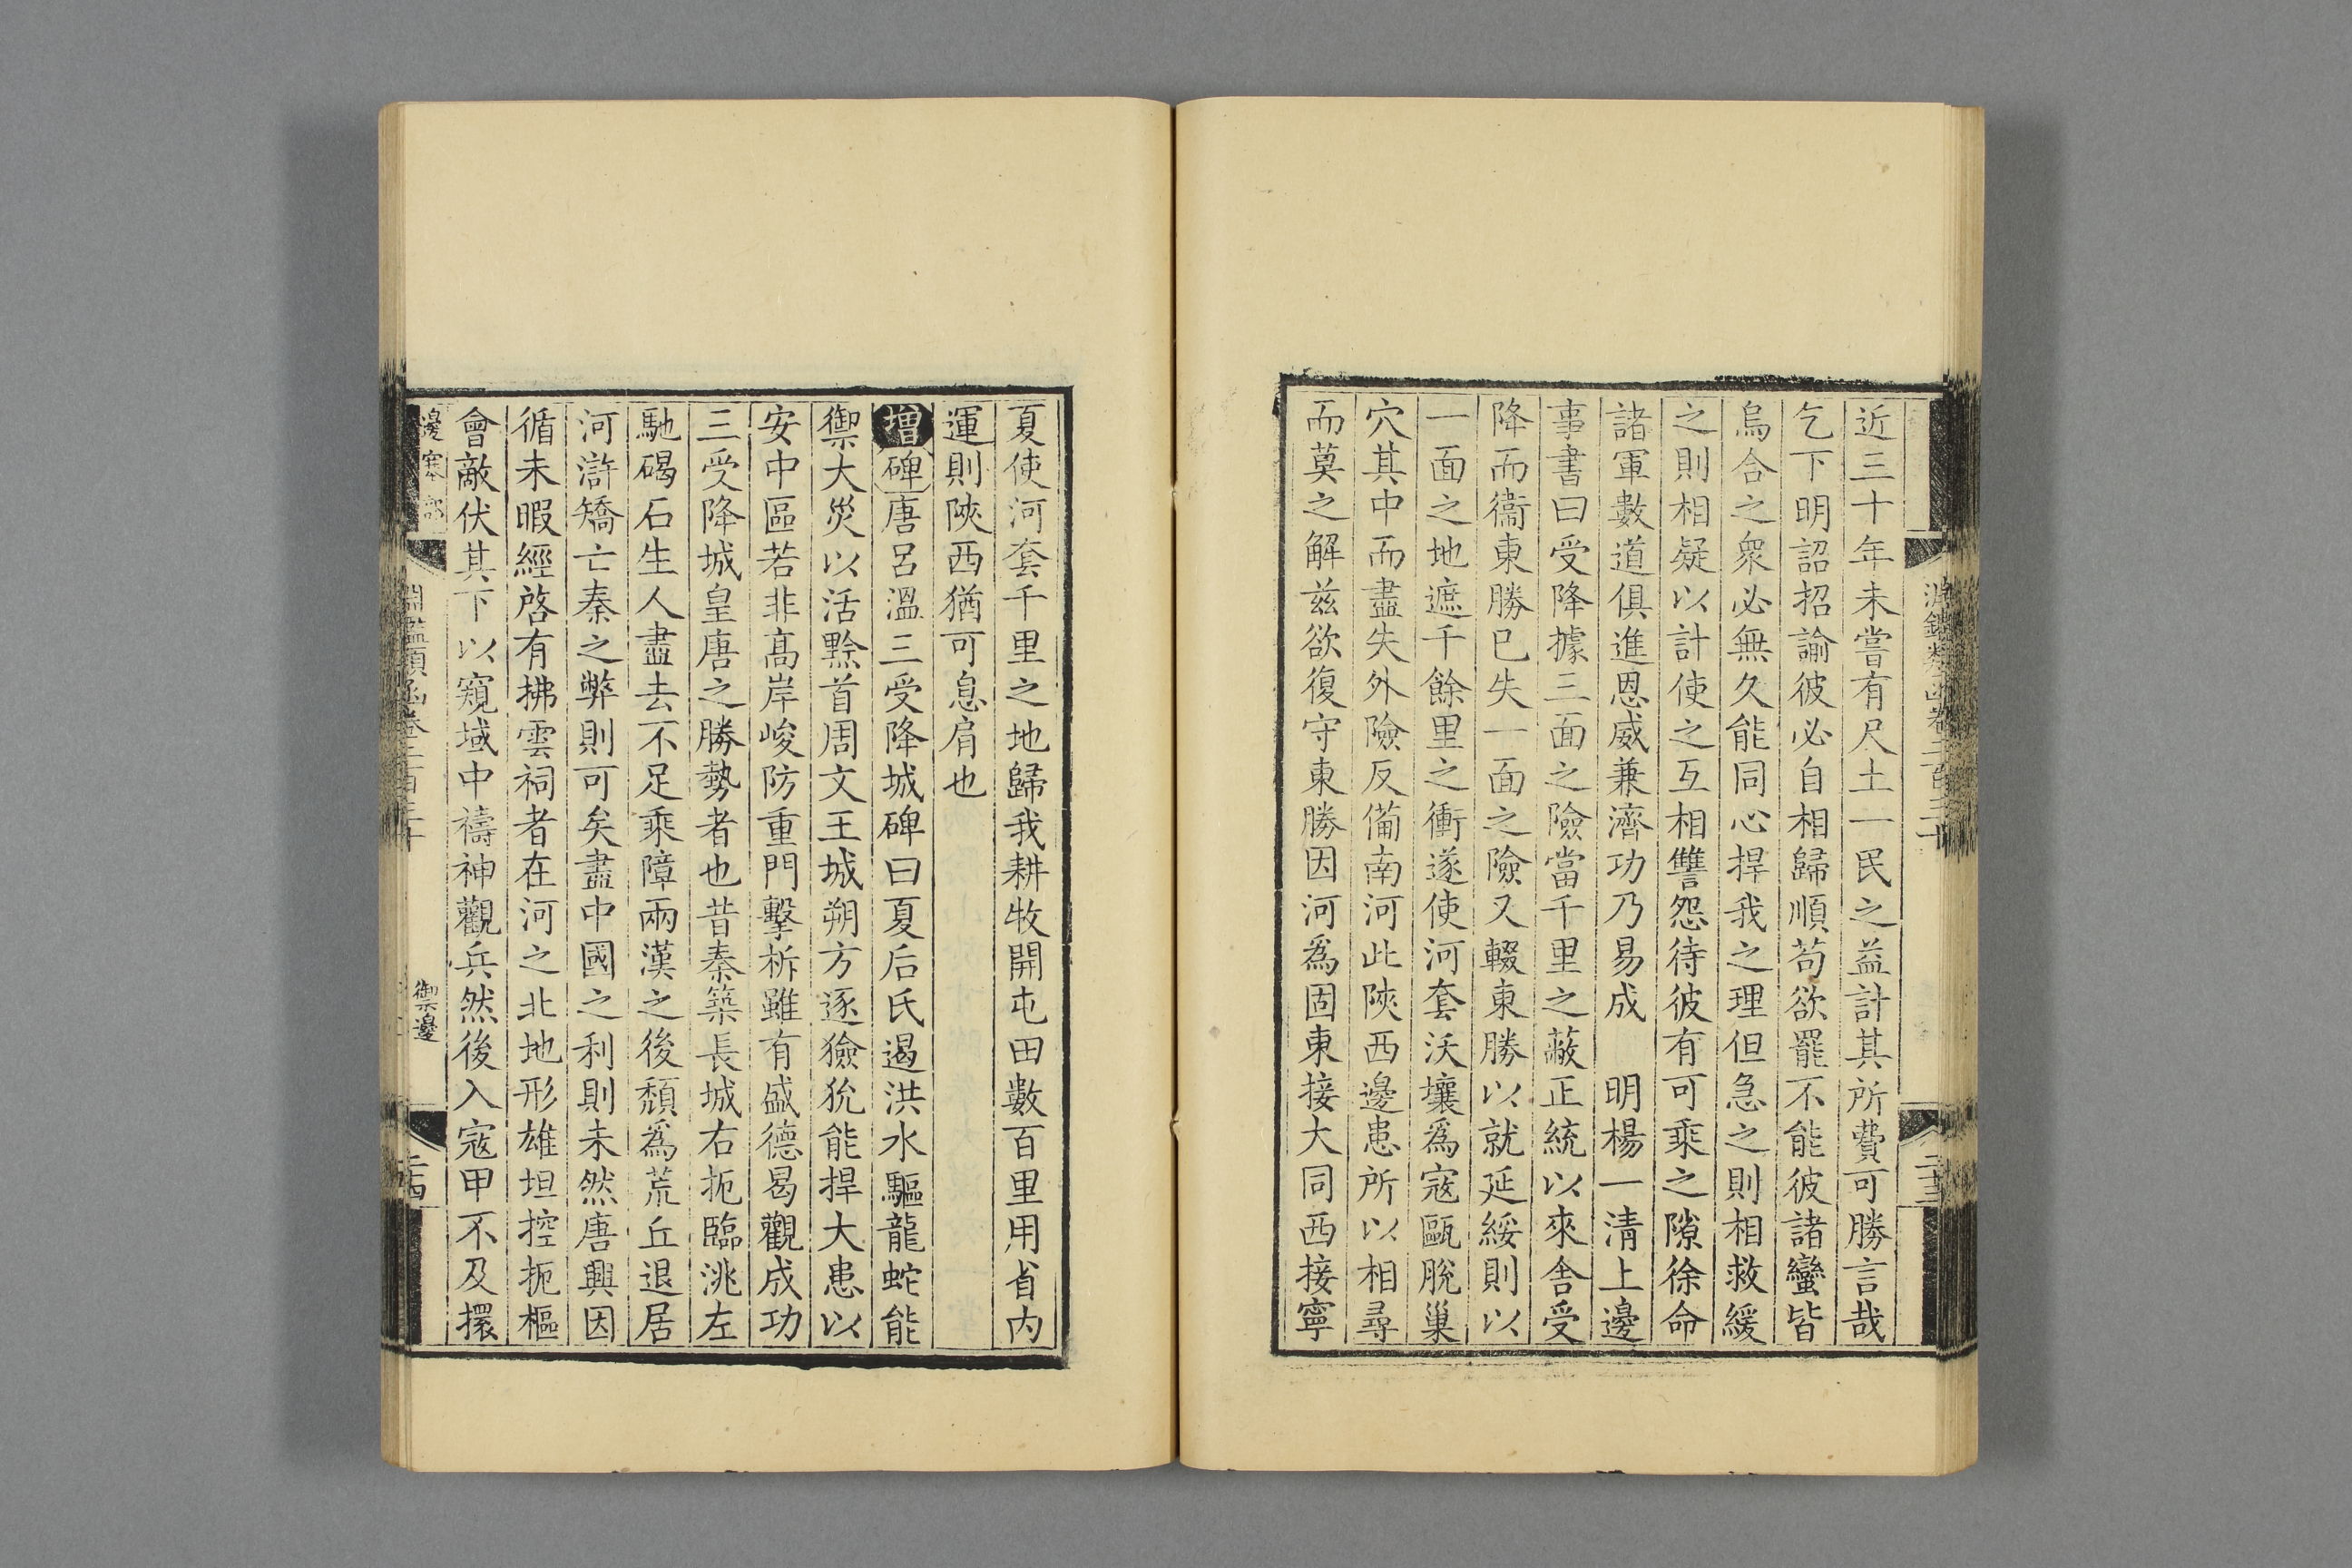 近三十年未嘗有尺土一民之益計其所費可勝言哉
乞下明詔招諭彼必自相歸順苟欲罷不能彼諸蠻皆
烏合之衆必無久能同心捍我之理但急之則相救緩
之則相疑以計使之互相讐怨待彼有可乘之隙徐命
諸軍數道俱進恩威兼濟功乃易成　明楊一清上邊
事書曰受降據三面之險當千里之蔽正統以來舍受
降而衞東勝已失一面之險又輟東勝以就延綏則以
一面之地遮千餘里之衝遂使河套沃壤爲寇甌脫巢
穴其中而盡失外險反備南河此陜西邊患所以相尋
而莫之解兹欲復守東勝因河爲固東接大同西接寧
夏使河套千里之地歸我耕牧開屯田數百里用省内
運則陜西猶可息肩也
增碑唐呂溫三受降城碑曰夏后氏遏洪水驅龍蛇能
禦大災以活黔首周文王城朔方逐獫狁能捍大患以
安中區若非高岸峻防重門擊柝雖有盛德曷觀成功
三受降城皇唐之勝勢者也昔秦築長城右扼臨洮左
馳碣石生人盡去不足乘障兩漢之後頽爲荒丘退居
河滸矯亡秦之弊則可矣盡中國之利則未然唐興因
循未暇經啓有拂雲祠者在河之北地形雄坦控扼樞
會敵伏其下以窺域中禱神觀兵然後入寇甲不及擐
邊塞部
淵鑑類函卷二百三十
禦邊
二十四